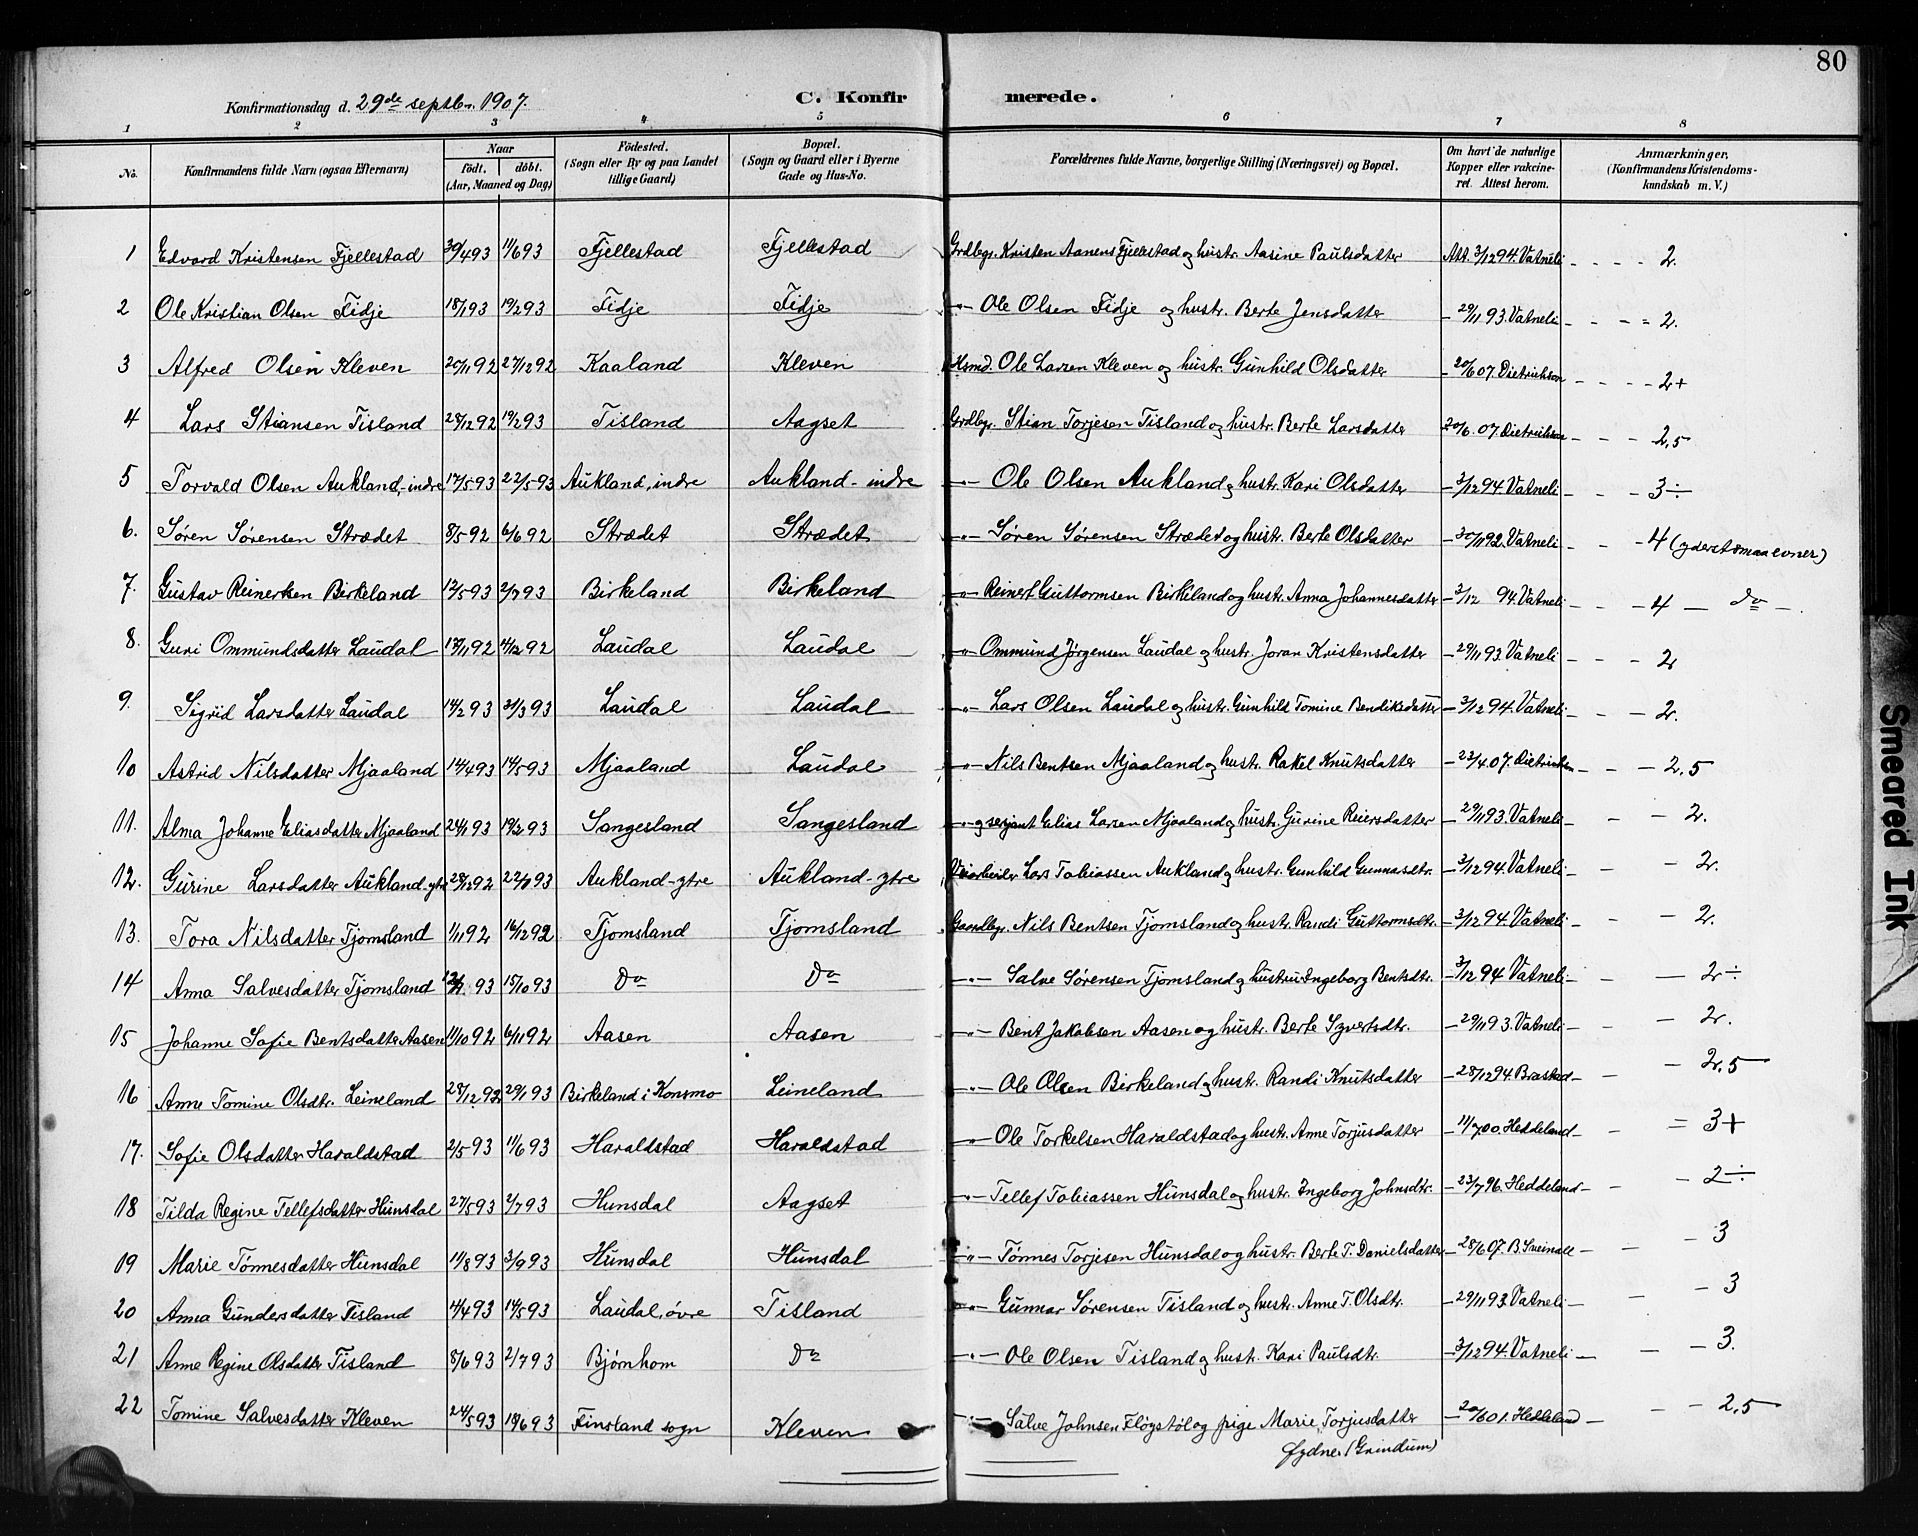 80
Konfirmationsdag d. 29de septbr. 1907.
C. Konfirmerede.
1 2 3 4 5 6 7 8
No. Konfirmandens fulde Navn (ogsaa Efternavn) Naar födt. döbt. (Aar, Maaned og Dag) Födested. (Sogn eller By og paa Landet tillige Gaard) Bopæl. (Sogn og Gaard eller i Byerne Gade og Hus-No. Forældrenes fulde Navne, borgerlige Stilling (Næringsvei) og Bopæl. Om havt de naturlige Kopper eller vakcineret. Attest herom. Anmærkninger. (Konfirmandens Kristendomskundskab m. V.)
1 Edvard Kristensen Fjellestad 30/4 93 11/6 93 Fjellestad Fjellestad Grdbgr. Kristen Aanens Fjellestad og hustr. Aasine Paulsdatter Att. 3/12 94. Vatneli - - - - 2.
2 Ole Kristian Olsen Fidje 18/1 93 19/2 93 Fidje Fidje -"- Ole Olsen Fidje og hustr. Berte Jensdatter - 29/11 93. Vatneli - - - - 2.
3 Alfred Olsen Kleven 20/11 92 27/12 92 Kaaland Kleven Hsmd. Ole Larsen Kleven og hustr. Gunhild Olsdatter - 20/6 07. Dietrichson - - - - 2+
4 Lars Stiansen Tisland 28/12 92 19/2 93 Tisland Aagset Grdbgr. Stian Torjesen Tisland og hustr. Berte Larsdatter - 20/6. 07. Dietrichson - - - 2,5
5 Torvald Olsen Aukland, indre 17/5 93 22/5 93 Aukland, indre Aukland - indre -"- Ole Olsen Aukland og hustr. Kari Olsdatter - 3/12 94. Vatneli - - - 3÷
6. Søren Sørensen Strædet 8/5 92 6/6 92 Strædet Strædet -"- Søren Sørensen Strædet og hustr. Berte Olsdatter - 30/11 92. Vatneli - - 4 (yderst smaa evner)
7. Gustav Reinertsen Birkeland 12/5 93 2/7 93 Birkeland Birkeland -"- Reinert Guttormsen Birkeland og hustr. Anna Johannesdatter - 3/12 94. Vatneli - - 4 — Do -
8. Guri Ommundsdatter Laudal 17/11 92 4/12 92 Laudal Laudal -"- Ommund Jørgensen Laudal og hustr. Joran Kristensdatter - 29/11 93. Vatneli - - - 2
9. Sigrid Larsdatter Laudal 14/2 93 31/3 93 Laudal Laudal -"- Lars Olsen Laudal og hustr. Gunhild Tomine Bendiksdatter - 3/12 94. Vatneli - - - 2.
10 Astrid Nilsdatter Mjaaland 14/4 93 14/5 93 Mjaaland Laudal -"- Nils Bentsen Mjaaland og hustr. Rakel Knutsdatter - 22/4. 07. Dietrichson - - 2,5
11. Alma Johanne Eliasdatter Mjaaland 24/1 93 19/2 93 Sangesland Sangesland -"- og serjant Elias Larsen Mjaaland og hustr. Gurine Reiersdatter - 29/11 93. Vatneli - - - 2.
12. Gurine Larsdatter Aukland-ytre 28/12 92 Aukland-ytre Aukland-ytre Lars Tobiassen Aukland og hustr. Gunhild Gunnarsdtr. - 3/12 94. Vatneli - - 2.
13. Tora Nilsdatter Tjomsland 1/11 92 16/12 92 Tjomsland Tjomsland Gaardbgr. Nils Bentsen Tjomsland og hustr. Randi Guttormsdtr. - 3/12 94. Vatneli - - 2.
14 Anna Salvesdatter Tjomsland 93 15/10 93 Do Do -"- Salve Sørensen Tjomsland og hustru Ingeborg Bentsdtr. - 3/12 94 Vatneli - — 2÷
15 Johanne Sofie Bentsdatter Aasen 11/10 92 6/11 92 Aasen Aasen -"- Bent Jakobsen Aasen og hustr. Berte Syvertsdtr. - 29/11 93. Vatneli - - - 2.
16 Anne Tomine Olsdtr. Leineland 28/12 92 29/1 93 Birkeland i Konsmo Leineland -"- Ole Olsen Birkeland og hustr. Randi Knutsdatter - 28/12 94. Brastad - - - 2,5
17. Sofie Olsdatter Haraldstad 2/5 93 11/6 93 Haraldstad Haraldstad -"- Ole Torkelsen Haraldstad og hustr. Anne Torjusdatter - 11/7 00. Heddeland - - - 3+
18 Tilda Regine Tellefsdatter Hunsdal 27/5 93 2/7 93 Hunsdal Aagset -"- Tellef Tobiassen Hunsdal og hustr. Ingeborg Johnsdtr. - 23/7 96. Heddeland - - - 2÷
19 Marie Tønnesdatter Hunsdal 11/8 93 3/9 93 Hunsdal Hunsdal -"- Tønnes Torjisen Hunsdal og hustr. Berte T. Danielsdatter - 28/6 07. B. Sveinall - - - 3
20 Anna Gundersdatter Tisland 4/4 93 14/5 93 Laudal, øvre Tisland -"- Gunnar Sørensen Tisland og hustr. Anne T. Olsdtr. - 29/11 93. Vatneli - - - 3
21 Anne Regine Olsdatter Tisland 8/6 93 2/7 93 Bjørnhom Do -"- Ole Olsen Tisland og hustr. Kari Paulsdtr. - 3/12 94. Vatneli - - - 3.
22 Tomine Salvesdatter Kleven 24/5 93 18/6 93 Finsland sogn Kleven -"- Salve Johnsen Fløgstøl og pige Marie Torjusdatter - 20/6 01. Heddeland - - - 2,5
Øydne (Grindum)
Smeared Ink